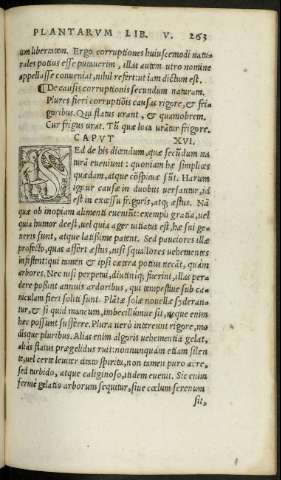 PLANTARVM LIB. V. 263
um liberiston. Ergo corruptiones huiuscemodi natu
rales potius esse putauerim, illas autem utro nomine
appellasse conueniat, nihil refert: ut iam dictum est.
¶De causis corruptionis secundum naturam.
Plures fieri corruptiões causas rigore, & fri
goribus. Qui status urant, & quamobrem.
Cur frigus urat. Tū quæ loca urātur frigore.
CAPVT XVI.
SEd de his dicendum, quæ secūdum na
turā eueniunt: quoniam hæ simplices
quædam, atque cōspicuæ sūt. Harum
igitur causæ in duobus uersantur, id
est in excessu frigoris, atq; æstus. Nā
quæ ob inopiam alimenti eueniūt: exempli gratia, uel
quia humor deest, uel quia ager uitiatus est, hæ sui ge-
neris sunt, atque latissime patent. Sed pauciores illæ
profecto, quas affert æstus, nisi squallores uehementes
insistent: qui tamen & ipsi cætera potius necāt, quàm
arbores. Nec nisi perpetui, diutiniq; fuerint, illas per-
dere possunt annuis ardoribus, qui tempestiue sub ca-
niculam fieri soliti sunt. Plātæ solæ nouellæ syderan-
tur, & si quid mancum, imbecillumue sit, neque enim
hec possunt suffistere. Plura uerò intereunt rigore, mo
disque pluribus. Alias enim algoris uehementia gelat,
aliàs flatus prægelidus rait: nonnunquam etiam silen-
te, uel certè leuiter dicto spiritu, non tamen puro aere,
sed turbido, atque caliginoso, itidem euenit. Sic enim
fermè gelatio arborum sequitur, siue cœlum serenum
sit,